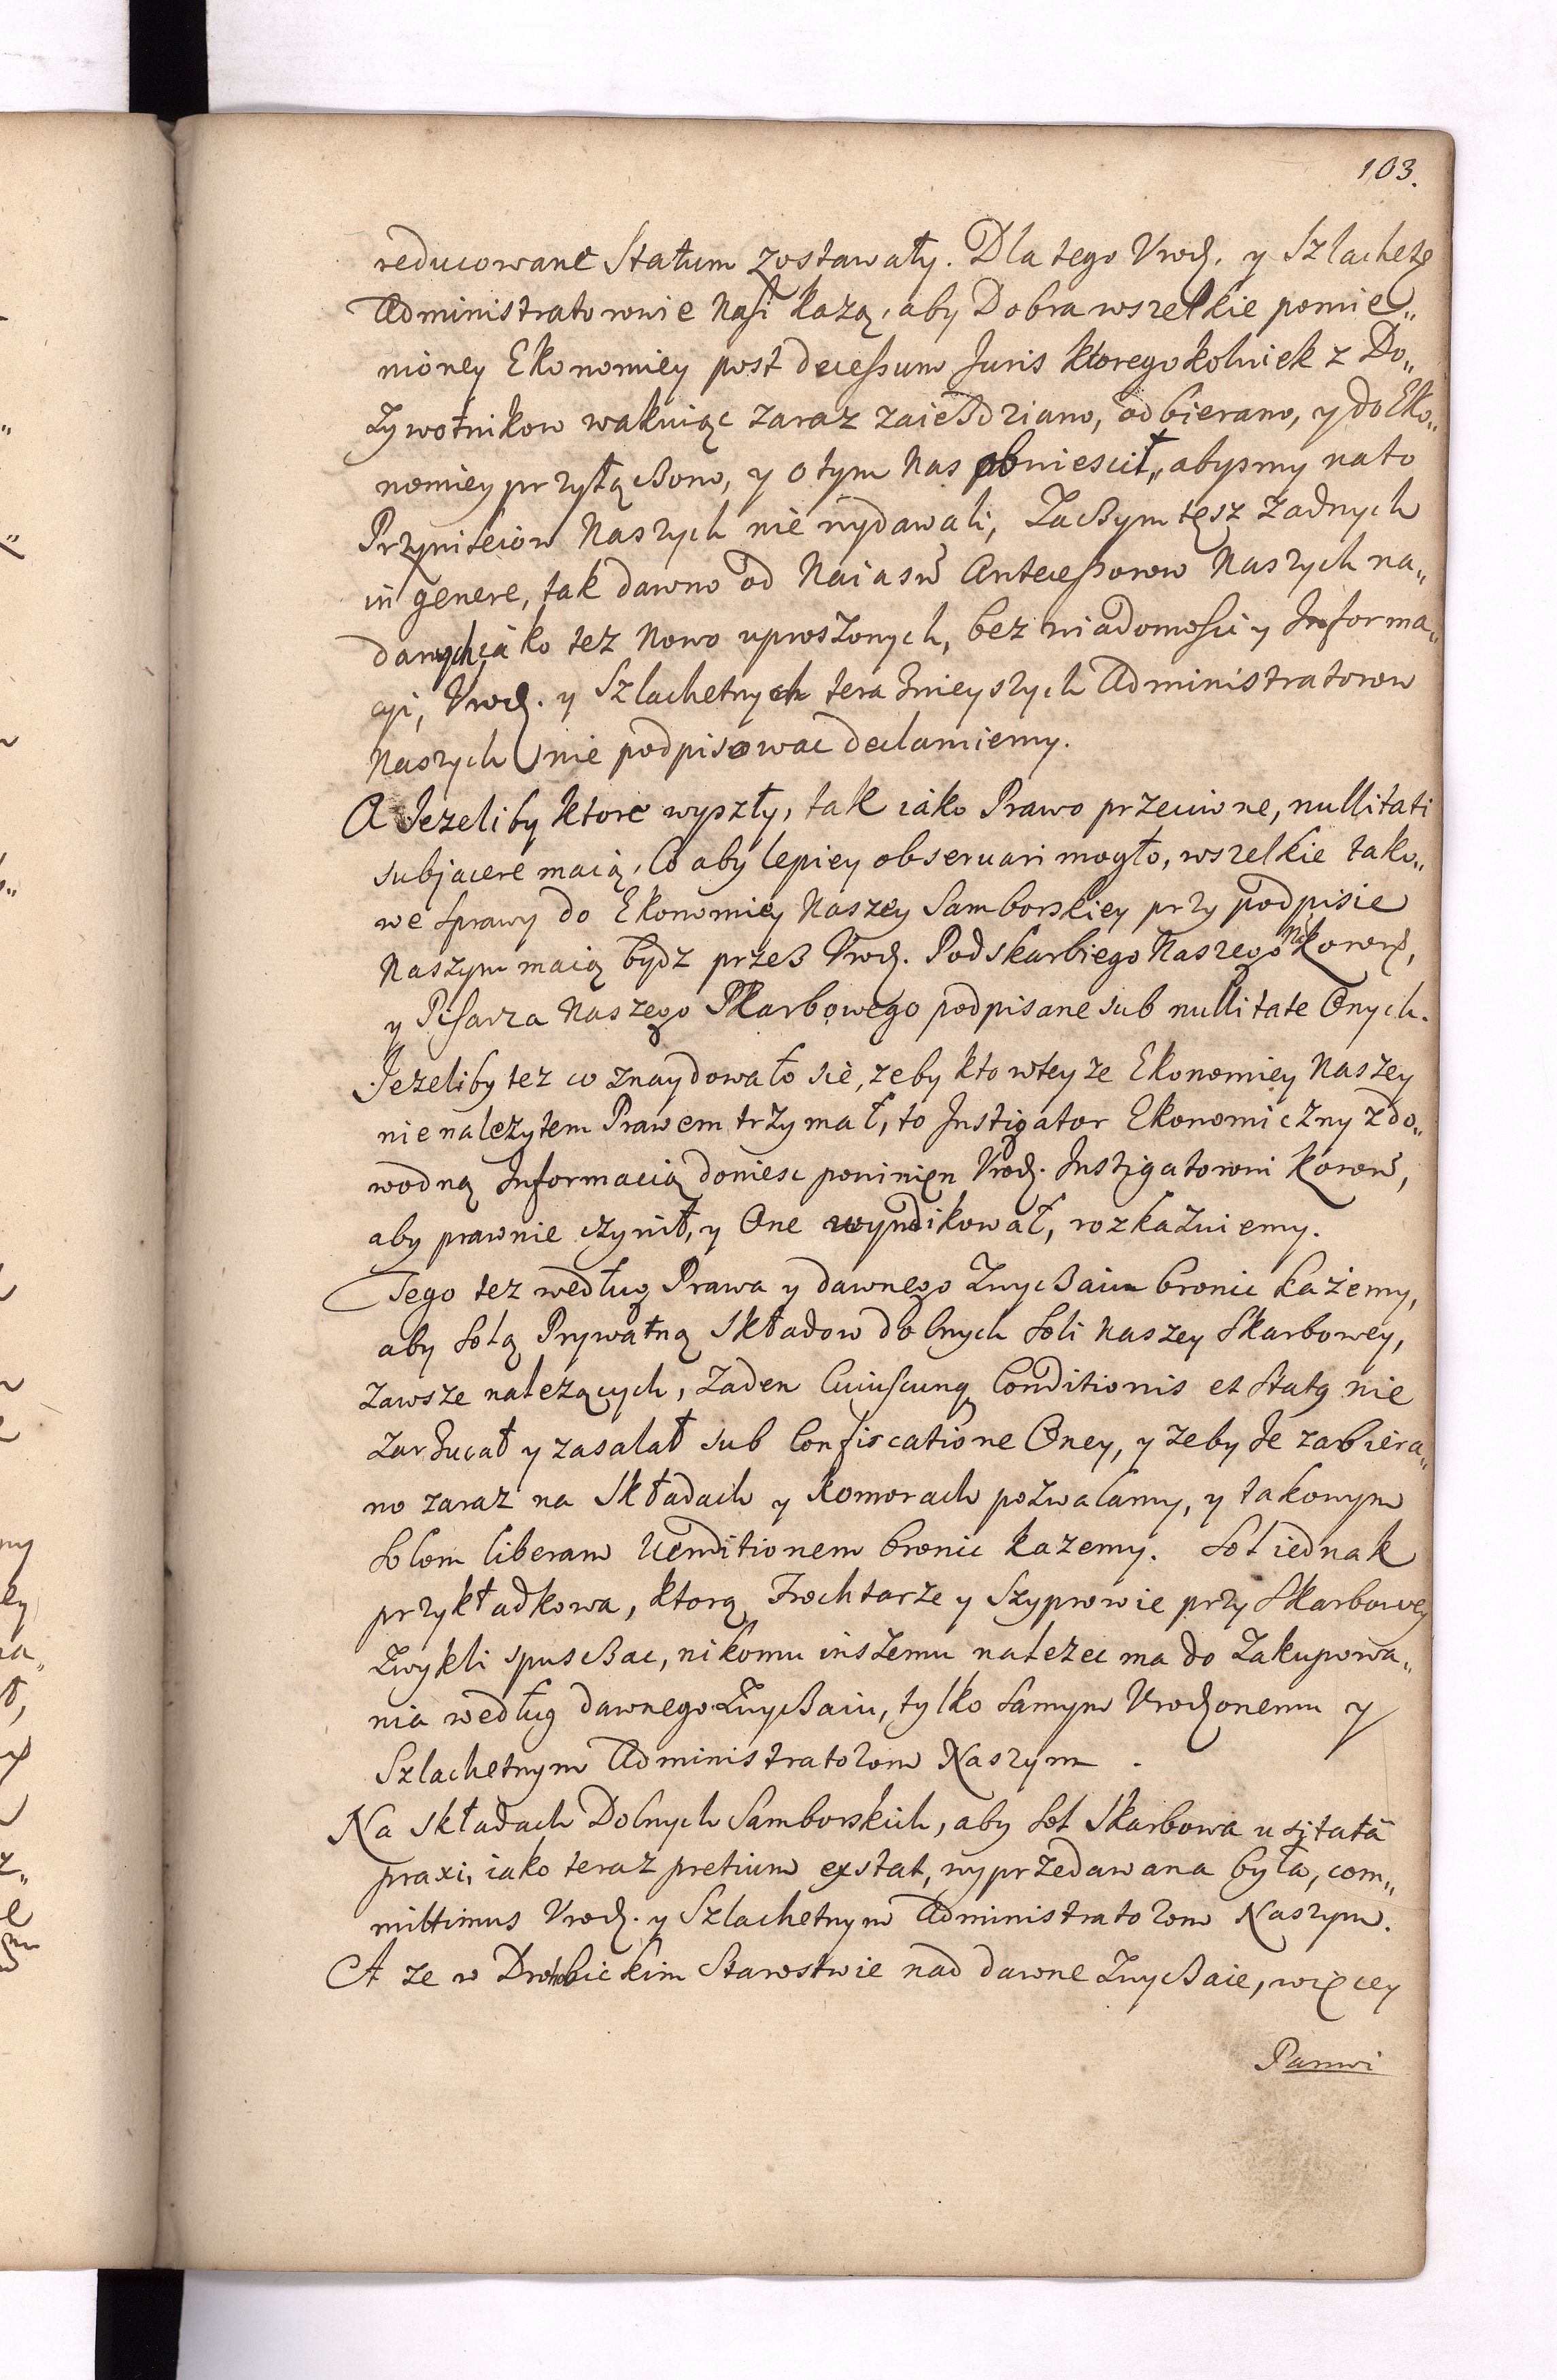 103.
reducowane Statum zostawały. Dla tego Urodz. y Szlachetę
Administratorowie Nasi każą, aby Dobra wszelkie pomie„
nioney Ekonomiey post decessum Juris ktoregokolwiek z Do„
żywotnikow wakuiąc zaraz zaieżdziano, odbierano, y do Eko„
nomiey przyłączono, y o tym Nas obwiescił„ abysmy na to
Przywileiow Naszych nie wydawali, Zaczym tesz żadnych
in genere, tak dawno od Naiasń Antecessorow Naszych na„
danych iako tez nowo uproszonych, bez wiadomosci y Informa„
cyi, Urodz. y Szlachetnych teraznieyszych Administratorow
Naszych nie podpisowac declaruiemy.
A Jezeliby ktore wyszły, tak iako Prawo przeciwne, nullitati
subjacere maią, Co aby lepiey observari mogło, wszelkie tako„
we Sprawy do Ekonomiey Naszey Samborskiey przy podpisie
Naszym maią bydz przez Urodz. Podskarbiego Naszego Nad. Koroñ,
y Pisarza Naszego Skarbowego podpisane sub nullitate Onych.
Jezeliby tez co znaydowało sie, zeby kto w teyze Ekonomiey Naszey
nienalezytem Prawem trzymał, to Instigator Ekonomiczny z do„
wodną Informacią doniesc powinien Urodz. Instigatorowi Koroñ,
aby prawnie czynił, y One wyndikował, rozkazuiemy.
Tego tez według Prawa y dawnego Zwyczaiu bronic każemy,
aby Solą Prywatną Składow dolnych Soli Naszey Skarbowey,
zawsze należących, żaden Cuiuscunq Conditionis et Statq nie
zarzucał y zasalał sub Confiscatione Oney, y zeby Je zabiera„
no zaraz na Składach y Komorach pozwalamy, y takowym
Solom liberam Venditionem bronic kazemy. Sol iednak
przykładkowa, ktorą Frochtarze y Szyprowie przy Skarbowey
zwykli spusczac, nikomu inszemu należec ma do Zakupowa„
nia według dawnego Zwyczaiu, tylko Samym Urodzonemu y
Szlachetnym Administratorom Naszym.
Na Składach Dolnych Samborskich, aby Sol Skarbowa usitatâ
praxi, iako teraz pretium exstat, wyprzedawana była, com„
mittimus Urodz. y Szlachetnym Administratorom Naszym.
A ze w Drohobickim Starostwie nad dawne Zwyczaie, więcey
Panwi